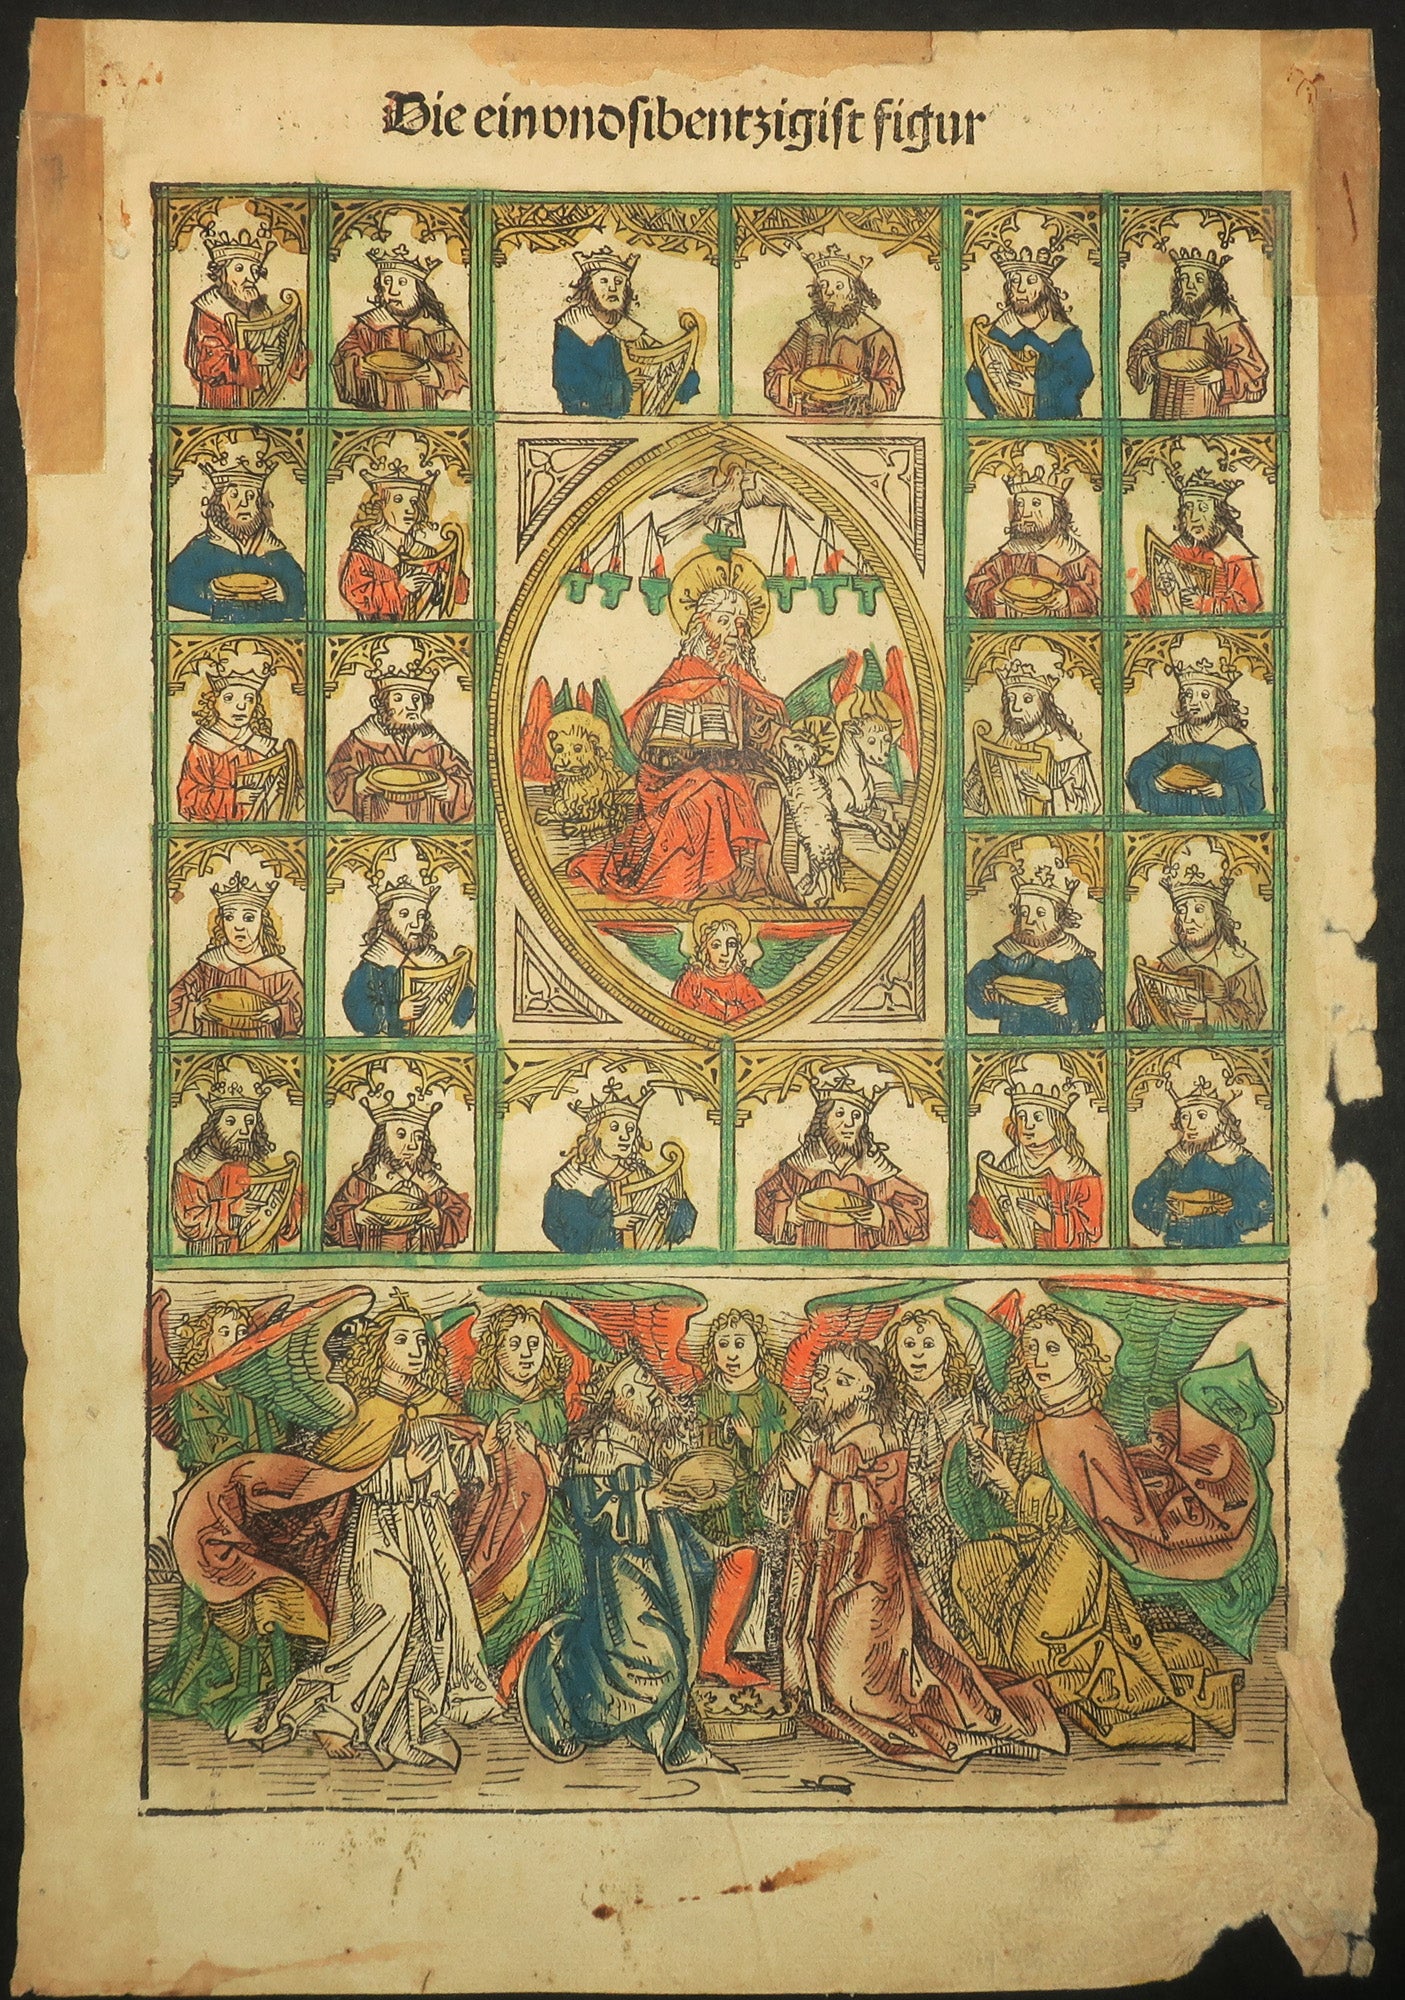 Die einvndsibentzigist figur